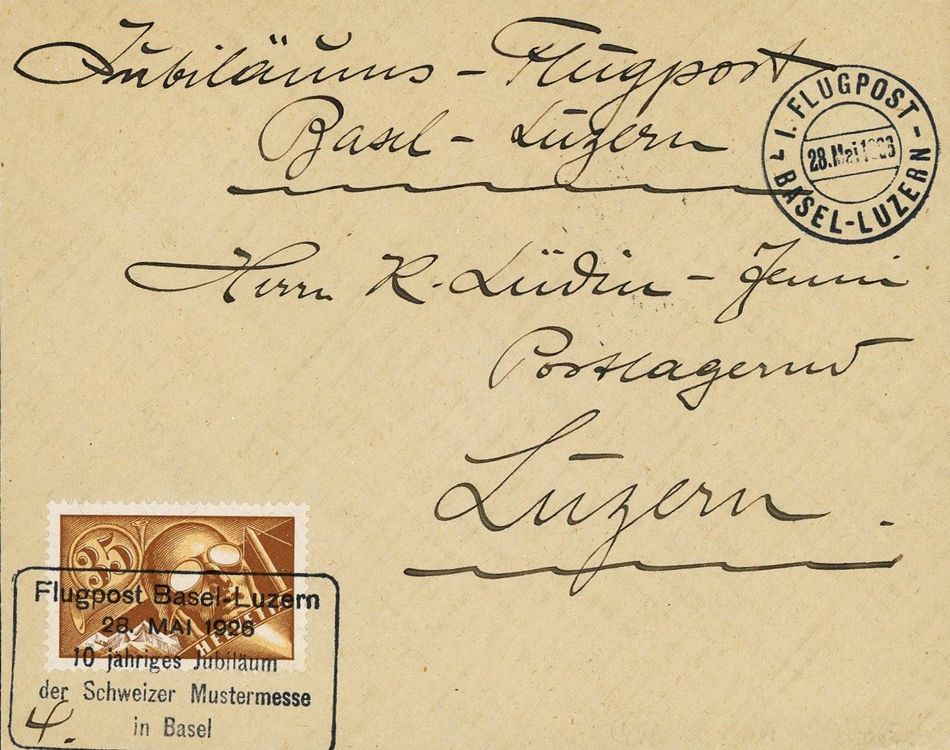 Jubiläums - Flugpost
Basel - Luzern
1. FLUGPOST -
28. Mai 1926
BASEL-LUZERN
Herrn K. Lüdin - Jenni
Postlagernd
Luzern.
35
HELVETIA
Flugpost Basel-Luzern
28. MAI 1926
10 jähriges Jubiläum
der Schweizer Mustermesse
in Basel
4.